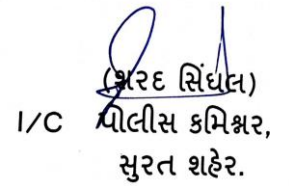 (શરદ સિંઘલ)
I/C પોલીસ કમિશ્નર,
સુરત શહેર.